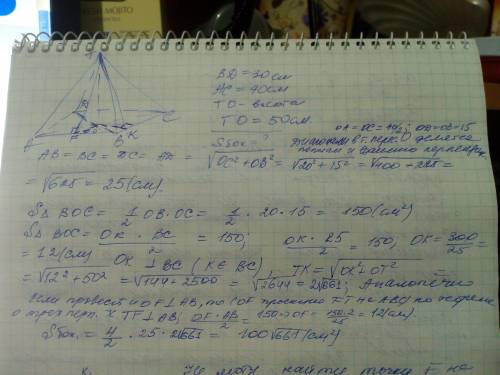 MOJITO
BD = 30см
AC = 40см
TO - высота
TO = 50см.
OA = OC = 40/2; OB = OD = 15
Sбок = ?
AB = BC = DC = AD = √OC² + OB² = √20² + 15² = √400 + 225 =
= √625 = 25 (см).
S△ BOC = 1/2 OB · OC = 1/2 · 20 · 15 = 150 (см²)
S△ BOC = OK · BC / 2 = 150; OK · 25 / 2 = 150, OK = 300/25 =
= 12 (см) OK ⊥ BC (K ∈ BC), TK = √OK² + OT² =
= √12² + 50² = √144 + 2500 = √2644 = 2√661; Аналогично
Если провести OF ⊥ AB, то (OF проекция FT на ABC) по теореме
о трех перп. TF ⊥ AB; OF · AB / 2 = 150 ⇒ OF = 150·2/25 = 12 (см).
Sбок. = 4/2 · 25 · 2√661 = 100√661 (см²)
Не могу найти точки F не